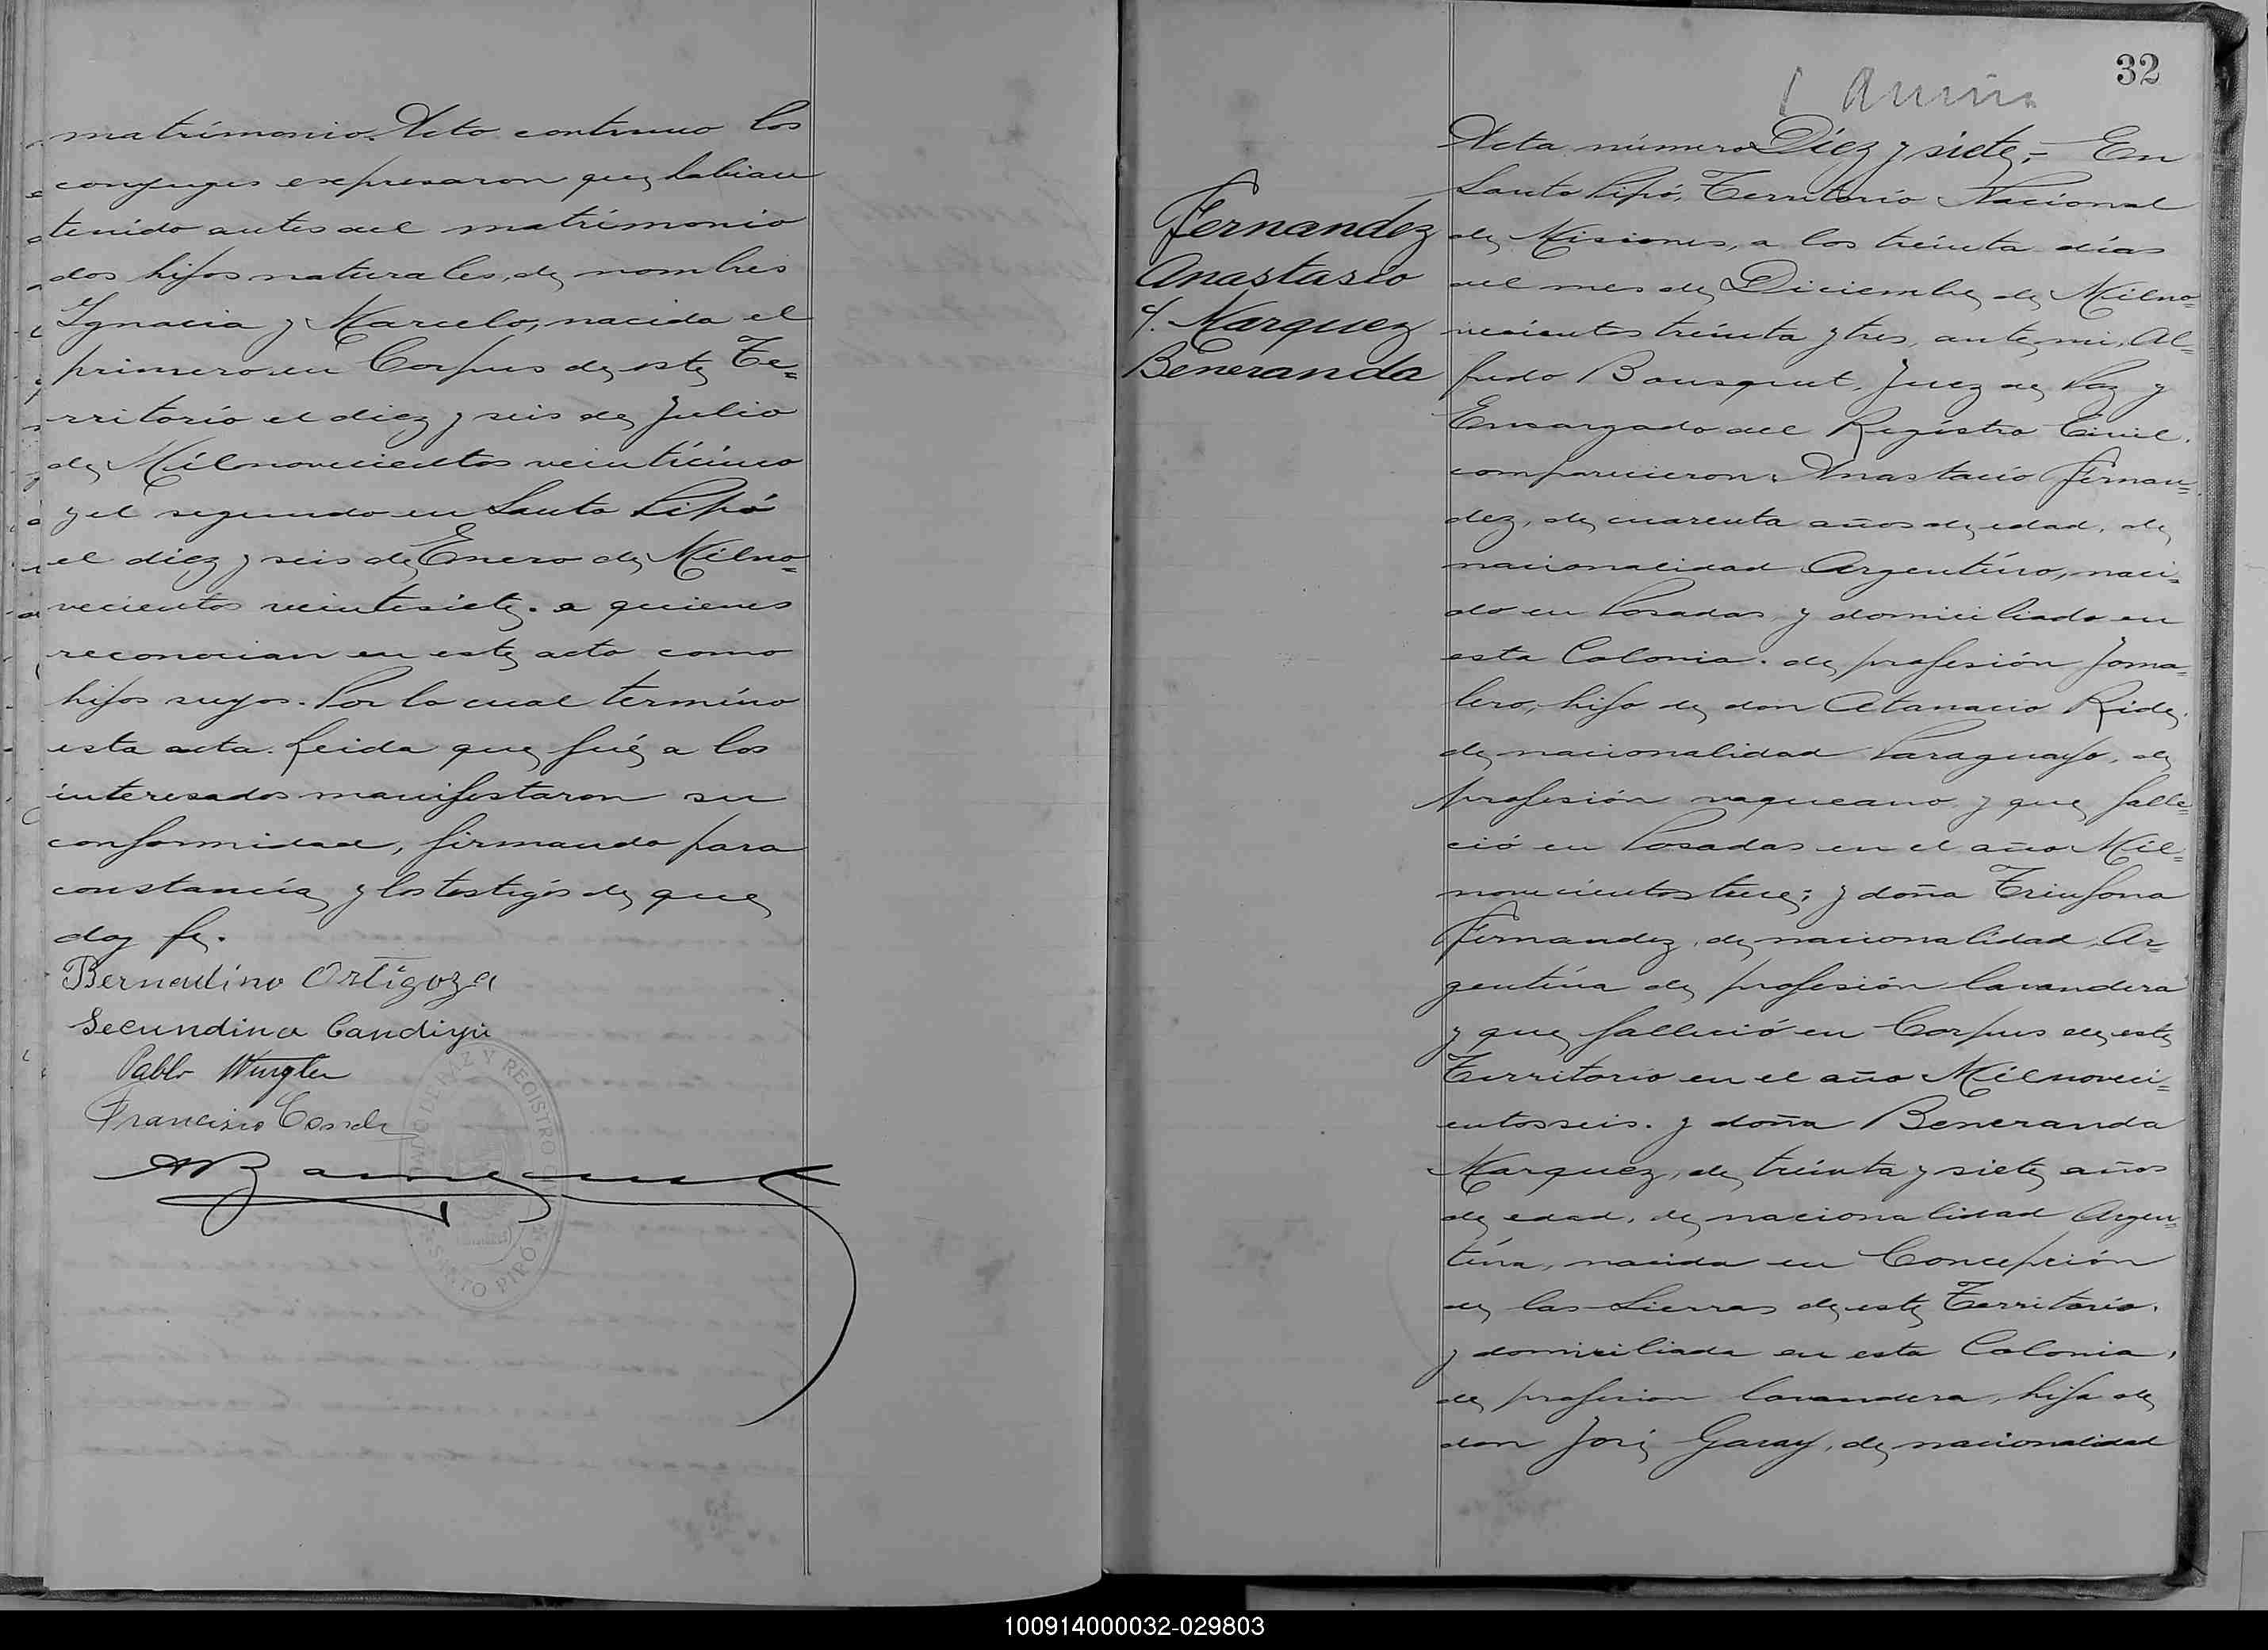 matrimonio. Acto continuo los
conyuges expresaron que, habian
tenido antes del matrimonio
dos hijos naturales, de nombres
Ignacia y Marcelo, nacida el
primero en Corpus de este Te=
rritorio el diez y seis de Julio
de Milnovecientos veinticinco
y el segundo en Santo Pipó
el diez y seis de Enero de Milno=
vecientos veintesiete. a quienes
reconocian en este acto como
hijos suyos. Por lo cual termino
esta acta. Leida que fué a los
interesados manifestaron su
conformidad, firmando para
constancia y los testigos de que
doy fe.
Bernardino Ortigoza
Secundina Candiyu
Pablo Wurgler
Francisco Conde
JUZGADO DE PAZ Y REGISTRO CIVIL
SANTO PIPÓ
32
Acta número Diez y siete;= En
Santo Pipó, Territorio Nacional
de Misiones, a los treinta días
del mes de Diciembre de Milno=
vecientos treinta y tres, ante mi, Al=
fredo Bousquet, Juez de Paz y
Encargado del Registro Civil.
comparecieron: Anastacio Fernan=
dez, de cuarenta años de edad, de
nacionalidad Argentino, naci=
do en Posadas y domiciliado en
esta Colonia. de profesión Jorna=
lero, hijo de don Atanacio Ride,
de nacionalidad Paraguayo, de
profesión vaqueano y que falle=
ció en Posadas en el año Mil=
novecientos trece; y doña Triufona
Fernandez, de nacionalidad Ar=
gentina de profesión lavandera
y que falleció en Corpus de este
Territorio en el año Milnoveci=
entos seis. y doña Beneranda
Marquez, de treinta y siete años
de edad, de nacionalidad Argen=
tina, nacida en Concepción
de las Sierras de este Territorio.
y domiciliada en esta Colonia,
de profesion lavandera, hija de
don José Garay, de nacionalidad
Fernandez
Anastasio
y. Marquez
Beneranda
100914000032-029803